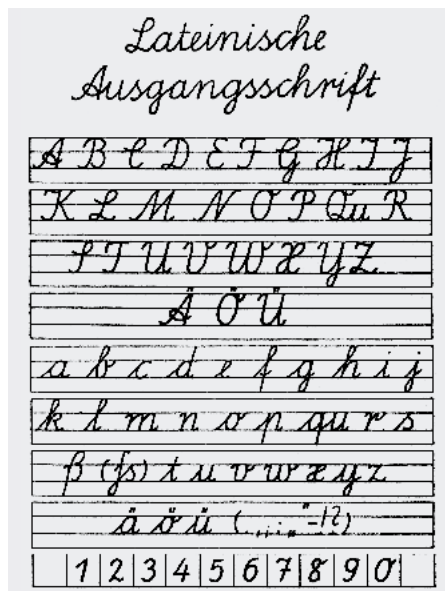 Lateinische
Ausgangsschrift
A B C D E F G H I J
K L M N O P Qu R
S T U V W X Y Z
Ä Ö Ü
a b c d e f g h i j
k l m n o p qu r s
ß (ſs) t u v w x y z
ä ö ü (.,:;„"-!?)
1 2 3 4 5 6 7 8 9 0